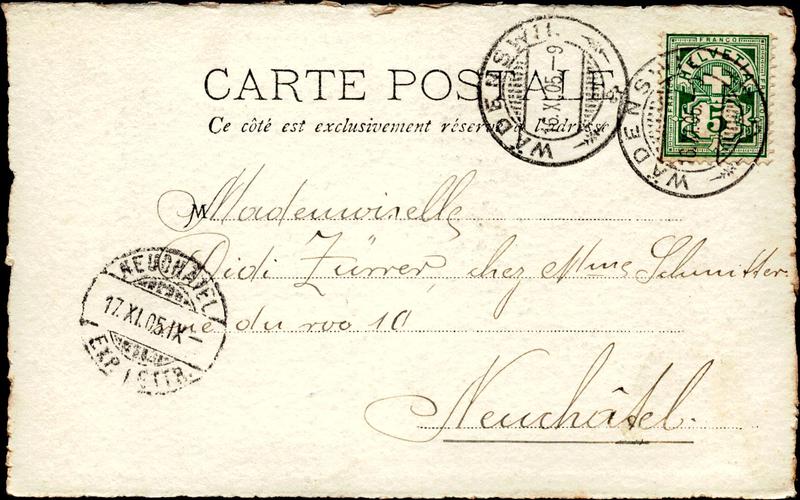 FRANCO
HELVETIA
5
WÄDENSWIL
16.XI.05.-9
WÄDENSWIL
CARTE POSTALE
Ce côté est exclusivement réservé à l'adresse
M Mademoiselle
Didi Zürrer, chez Mme Schmitter
rue du roc 10
Neuchâtel.
NEUCHATEL
17.XI.05.IX
EXP. LETTR.